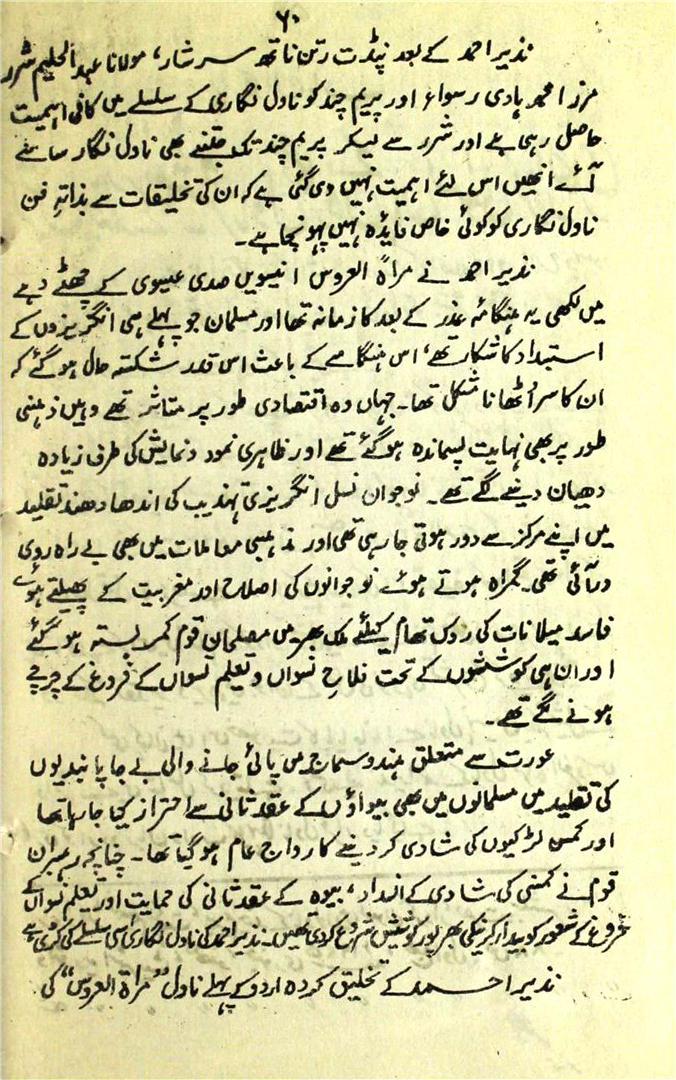 ۶۰
نذیر احمد کے بعد پنڈت رتن ناتھ سرشار، مولانا عبدالحلیم شرر
مرزا محمد ہادی رسوا، اور پریم چند کو ناول نگاری کے سلسلے میں کافی اہمیت
حاصل رہی ہے اور شرر سے لیکر پریم چند تک جتنے بھی ناول نگار سامنے
آئے انھیں اس لئے اہمیت نہیں دی گئی ہے کہ ان کی تخلیقات سے بذاتہ فن
ناول نگاری کو کوئی خاص فایدہ نہیں پہونچا ہے۔
نذیر احمد نے مراۃ العروس انیسویں صدی عیسوی کے چھٹے دہے
میں لکھی یہ ہنگامۂ غدر کے بعد کا زمانہ تھا اور مسلمان جو پہلے ہی انگریزوں کے
استبداد کا شکار تھے، اس ہنگامے کے باعث اس قدر شکستہ حال ہو گئے کہ
ان کا سر اُٹھانا مشکل تھا۔ جہاں وہ اقتصادی طور پر متاثر تھے وہیں ذہنی
طور پر بھی نہایت پسماندہ ہو گئے تھے اور ظاہری نمود و نمایش کی طرف زیادہ
دھیان دینے لگے تھے۔ نوجوان نسل انگریزی تہذیب کی اندھا دھند تقلید
میں اپنے مرکز سے دور ہوتی جا رہی تھی اور مذہبی معاملات میں بھی بے راہ روی
در آئی تھی۔ گمراہ ہوتے ہوئے نوجوانوں کی اصلاح اور مغربیت کے پھیلتے ہوئے
فاسد میلانات کی روک تھام کیلئے ملک بھر میں مصلحان قوم کمربستہ ہو گئے
اور ان ہی کوششوں کے تحت فلاحِ نسواں و تعلیم نسواں کے فروغ کے چرچے
ہونے لگے تھے۔
عورت سے متعلق ہندو سماج میں پائی جانے والی بے جا پابندیوں
کی تقلید میں مسلمانوں میں بھی بیواؤں کے عقد ثانی سے احتراز کیا جا رہا تھا
اور کمسن لڑکیوں کی شادی کر دینے کا رواج عام ہو گیا تھا۔ چنانچہ رہبران
قوم نے کمسنی کی شادی کے انسداد، بیوہ کے عقد ثانی کی حمایت اور تعلیم نسواں کے
فروغ کے شعور کو بیدار کرنیکی بھرپور کوششیں شروع کر دی تھیں۔ نذیر احمد کی ناول نگاری اسی سلسلے کی کڑی ہے
نذیر احمد کے تخلیق کردہ اردو کے پہلے ناول "مراۃ العروس" کی